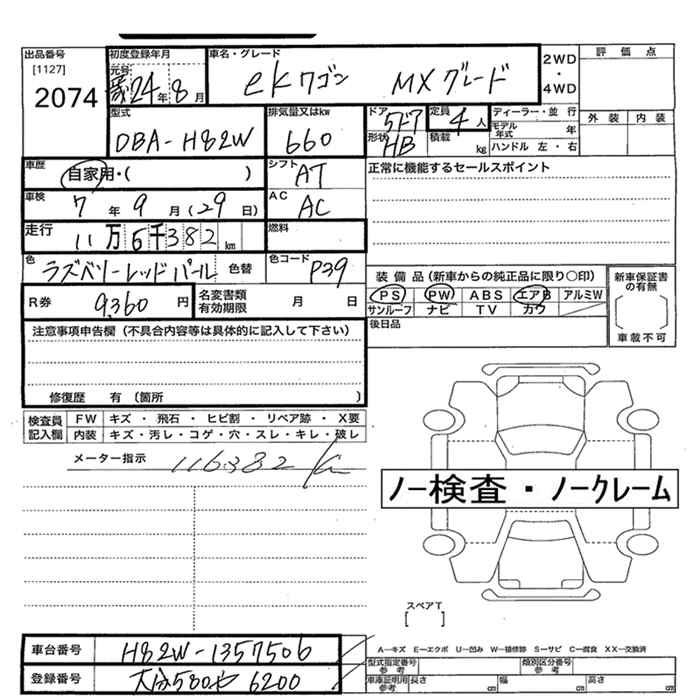 出品番号 初度登録年月 車名・グレード 2WD・4WD 評価点
[1127] 元号 24年 8月 ekワゴン MXグレード
2074
型式 排気量又はkw ドア 5ドア 定員 4人 ディーラー・並行 外装 内装
DBA-H82W 660 形状 HB 積載 kg モデル年式 年
ハンドル 左・右
車歴 自家用・( ) シフト AT 正常に機能するセールスポイント
車検 7年 9月 (29日) AC AC
走行 11万6千382km 燃料
色 ラズベリーレッドパール 色替 色コード P39 装備品(新車からの純正品に限り〇印) 新車保証書の有無
R券 9,360円 名変書類有効期限 月 日 PS PW ABS エアB アルミW
サンルーフ ナビ TV カワ
後日品 車載不可
注意事項申告欄(不具合内容等は具体的に記入して下さい)
修復歴 有(箇所 )
検査員 FW キズ・飛石・ヒビ割・リペア跡・X要
記入欄 内装 キズ・汚レ・コゲ・穴・スレ・キレ・破レ
メーター指示 116382
ノー検査・ノークレーム
スペアT
[ ]
車台番号 H82W-1357506 A-キズ E-エクボ U-凹み W-補修跡 S-サビ C-腐食 XX-交換済
登録番号 大分580や6200 型式指定番号参考 類別区分番号参考
車庫証明用参考 長さ cm 幅 cm 高さ cm